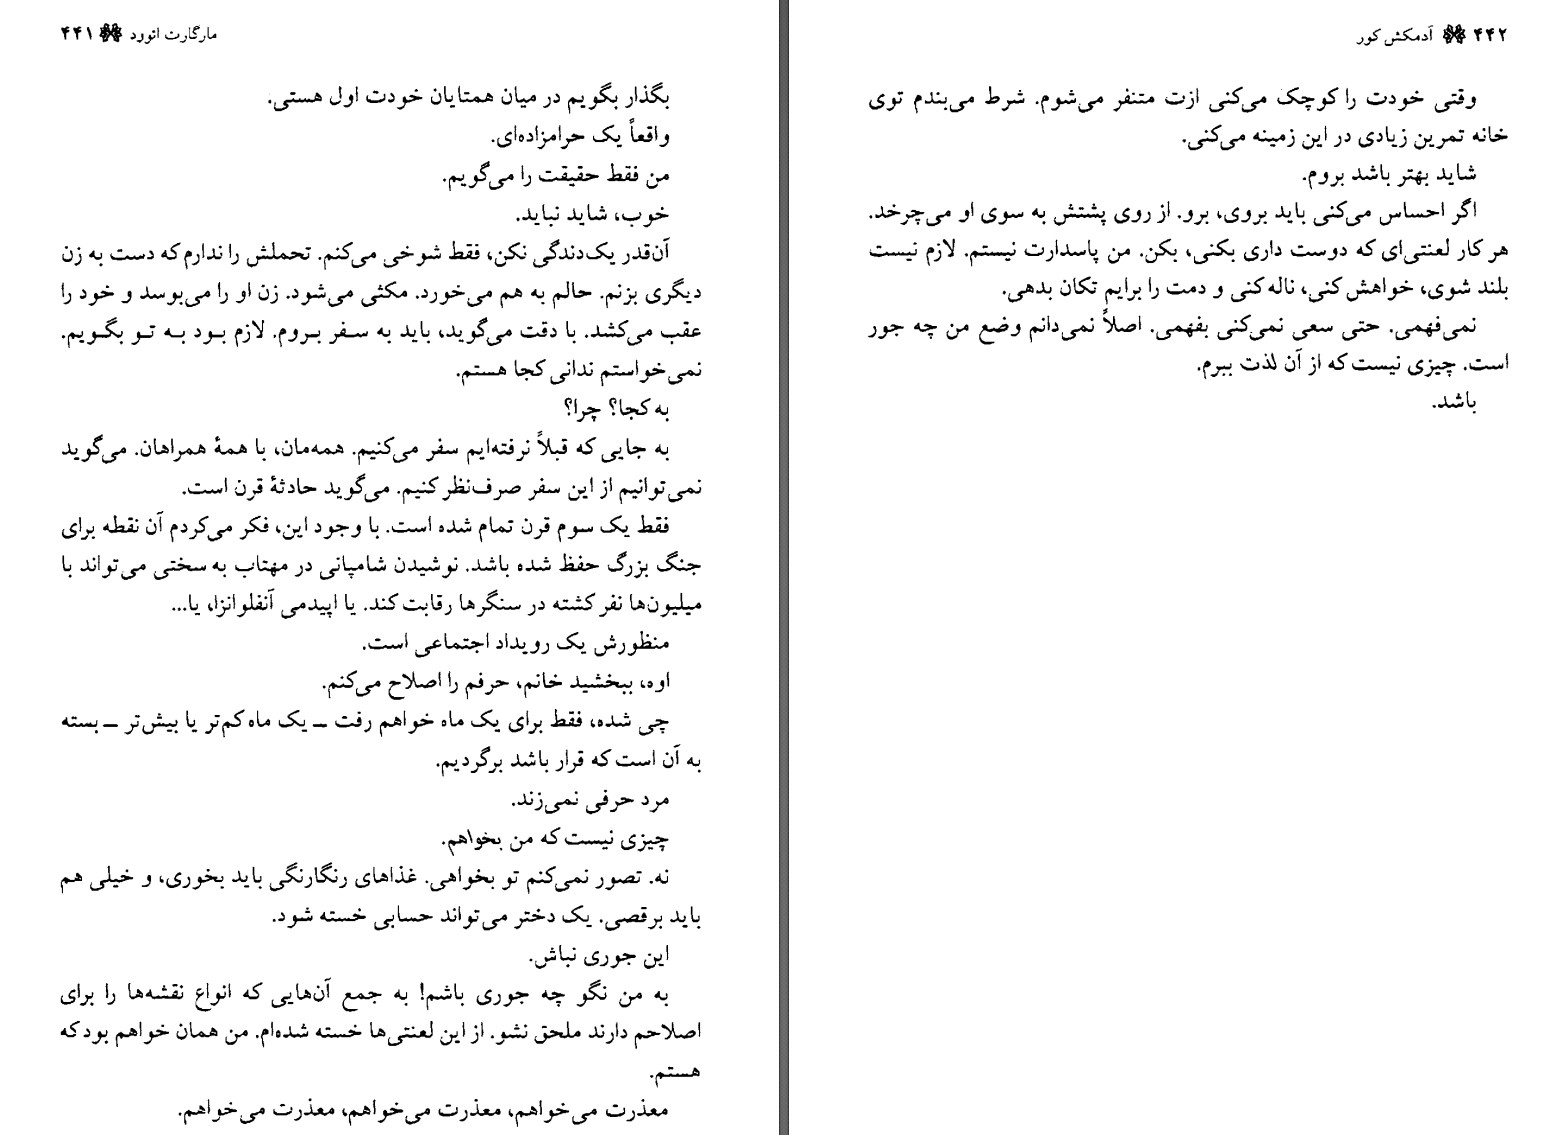 مارگارت اتوود ۴۴۱
بگذار بگویم در میان همتایان خودت اول هستی.
واقعاً یک حرامزاده‌ای.
من فقط حقیقت را می‌گویم.
خوب، شاید نباید.
آن‌قدر یک‌دندگی نکن، فقط شوخی می‌کنم. تحملش را ندارم که دست به زن
دیگری بزنم. حالم به هم می‌خورد. مکثی می‌شود. زن او را می‌بوسد و خود را
عقب می‌کشد. با دقت می‌گوید، باید به سفر بروم. لازم بود به تو بگویم.
نمی‌خواستم ندانی کجا هستم.
به کجا؟ چرا؟
به جایی که قبلاً نرفته‌ایم سفر می‌کنیم. همه‌مان، با همهٔ همراهان. می‌گوید
نمی‌توانیم از این سفر صرف‌نظر کنیم. می‌گوید حادثهٔ قرن است.
فقط یک سوم قرن تمام شده است. با وجود این، فکر می‌کردم آن نقطه برای
جنگ بزرگ حفظ شده باشد. نوشیدن شامپانی در مهتاب به سختی می‌تواند با
میلیون‌ها نفر کشته در سنگرها رقابت کند. یا اپیدمی آنفلوانزا، یا...
منظورش یک رویداد اجتماعی است.
اوه، ببخشید خانم، حرفم را اصلاح می‌کنم.
چی شده، فقط برای یک ماه خواهم رفت ـ یک ماه کم‌تر یا بیش‌تر ـ بسته
به آن است که قرار باشد برگردیم.
مرد حرفی نمی‌زند.
چیزی نیست که من بخواهم.
نه. تصور نمی‌کنم تو بخواهی. غذاهای رنگارنگی باید بخوری، و خیلی هم
باید برقصی. یک دختر می‌تواند حسابی خسته شود.
این جوری نباش.
به من نگو چه جوری باشم! به جمع آن‌هایی که انواع نقشه‌ها را برای
اصلاحم دارند ملحق نشو. از این لعنتی‌ها خسته شده‌ام. من همان خواهم بود که
هستم.
معذرت می‌خواهم، معذرت می‌خواهم، معذرت می‌خواهم.
۴۴۲ آدمکش کور
وقتی خودت را کوچک می‌کنی ازت متنفر می‌شوم. شرط می‌بندم توی
خانه تمرین زیادی در این زمینه می‌کنی.
شاید بهتر باشد بروم.
اگر احساس می‌کنی باید بروی، برو. از روی پشتش به سوی او می‌چرخد.
هر کار لعنتی‌ای که دوست داری بکنی، بکن. من پاسدارت نیستم. لازم نیست
بلند شوی، خواهش کنی، ناله کنی و دمت را برایم تکان بدهی.
نمی‌فهمی. حتی سعی نمی‌کنی بفهمی. اصلاً نمی‌دانم وضع من چه جور
است. چیزی نیست که از آن لذت ببرم.
باشد.